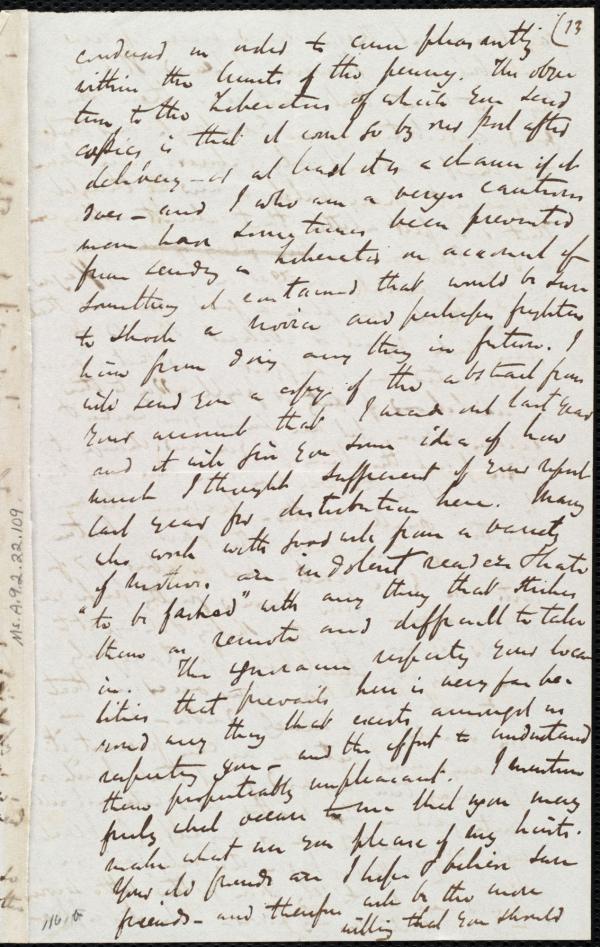 (13
condensed in order to come pleasantly
within the limits of the penny. The objec
tion to the Liberators of which you send
copies is that it comes so by our Post after
delivery — or at least it is a chance if it
does — and I who am a very cautious
man have sometimes been prevented
from sending a Liberator on account of
something it contained that would be sure
to shock a novice and perhaps frighten
him from doing any thing in future. I
will send you a copy of the abstract from
your account that I made out last year
and it will give you some idea of how
much I thought sufficient of your report
last year for distribution here. Many
who work with good will from a variety
of motives are indolent readers & hate
"to be fashed" with any thing that strikes
them as remote and difficult to take
in. The ignorance respecting your loca
lities that prevails here is very far be-
yond any thing that exists amongst us
respecting you — and the effort to understand
them proportionably unpleasant. I mention
freely what occurs to me that you may
make what use you please of my hints.
Your old friends are I hope & believe sure
friends — and therefore will be the more
willing that you should
Ms. A. 9. 2. 22. 109